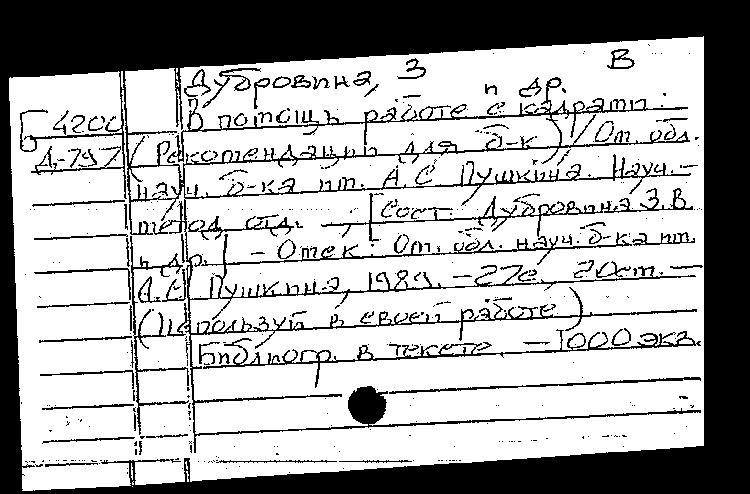 Дубровина, З В
и др.
Б 4200 В помощь работе с кадрами:
Д-797 (Рекомендации для б-к) / Ом. обл.
науч. б-ка им. А.С Пушкина. Науч.-
метод. отд. ; [Сост. Дубровина З.В.
и др.] - Омск: Ом. обл. науч. б-ка им.
А.С Пушкина, 1989. - 27с., 20см. -
(Используй в своей работе).
Библиогр. в тексте. - 1000 экз.